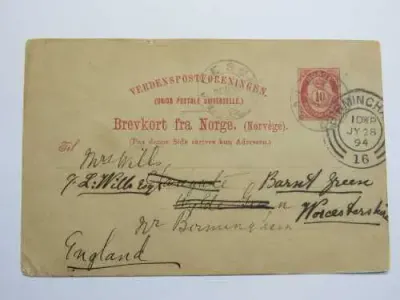 VERDENSPOSTFORENINGEN.
(UNION POSTALE UNIVERSELLE.)
Brevkort fra Norge. (Norvège).
(Paa denne Side skrives kun Adressen.)
10
BIRMINGHA
JY 28
94
16
Til
Mrs Wills
J. L. Wills Esq Barnt Green
Worcestershire
Nr Birmingham
England